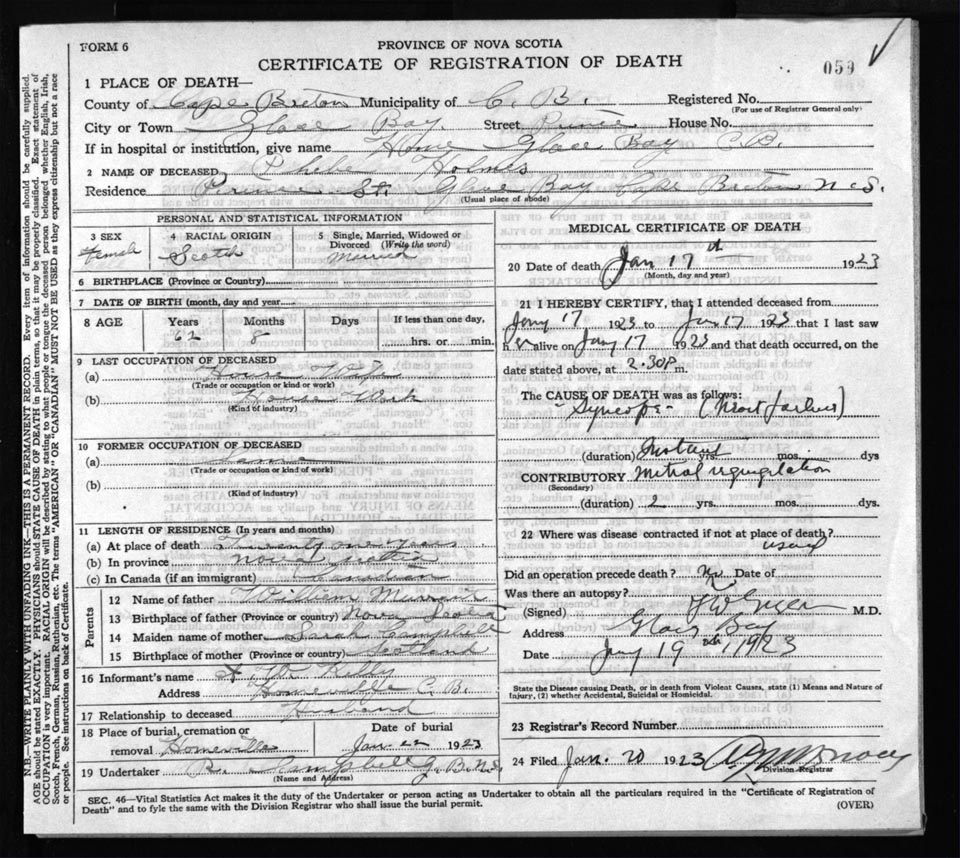 FORM 6
PROVINCE OF NOVA SCOTIA
CERTIFICATE OF REGISTRATION OF DEATH
059
1 PLACE OF DEATH—
County of Cape Breton Municipality of C. B. Registered No.
(For use of Registrar General only)
City or Town Glace Bay. Street Prince House No.
If in hospital or institution, give name Home Glace Bay C.B.
2 NAME OF DECEASED Phebe Holmes
Residence Prince St. Glace Bay Cape Breton N.S.
(Usual place of abode)
PERSONAL AND STATISTICAL INFORMATION
3 SEX
Female
4 RACIAL ORIGIN
Scotch
5 Single, Married, Widowed or Divorced (Write the word)
Married
6 BIRTHPLACE (Province or Country)
7 DATE OF BIRTH (month, day and year)
8 AGE Years Months Days If less than one day,
62 8 hrs. or min.
9 LAST OCCUPATION OF DECEASED
(a) House Wife
(Trade or occupation or kind or work)
(b) House Work
(Kind of industry)
10 FORMER OCCUPATION OF DECEASED
(a) Same
(Trade or occupation or kind or work)
(b)
(Kind of industry)
11 LENGTH OF RESIDENCE (In years and months)
(a) At place of death Twenty one years
(b) In province Nova Scotia
(c) In Canada (if an immigrant) Canadian
Parents
12 Name of father William Murrant
13 Birthplace of father (Province or country) Nova Scotia
14 Maiden name of mother Sarah Campbell
15 Birthplace of mother (Province or country) Scotland
16 Informant's name Kelly
Address Homeville C. B.
17 Relationship to deceased Husband
18 Place of burial, cremation or removal Homeville
Date of burial
Jan 22 1923
19 Undertaker R. Campbell G.B. N.S.
(Name and Address)
MEDICAL CERTIFICATE OF DEATH
20 Date of death Jan 17th 1923
(Month, day and year)
21 I HEREBY CERTIFY, that I attended deceased from
Jany 17 1923 to Jan 17 1923 that I last saw
her alive on Jany 17 1923 and that death occurred, on the
date stated above, at 2.30P m.
The CAUSE OF DEATH was as follows:
Syncope (Heart failure)
(duration) Instant yrs. mos. dys
CONTRIBUTORY Mitral regurgitation
(Secondary)
(duration) 2 yrs. mos. dys.
22 Where was disease contracted if not at place of death?
usual
Did an operation precede death? No Date of
Was there an autopsy?
(Signed) M.D.
Address Glace Bay
Date Jany 19th 1923
State the Disease causing Death, or in death from Violent Causes, state (1) Means and Nature of
Injury, (2) whether Accidental, Suicidal or Homicidal.
23 Registrar's Record Number
24 Filed Jan. 20 1923
Division Registrar
SEC. 46—Vital Statistics Act makes it the duty of the Undertaker or person acting as Undertaker to obtain all the particulars required in the "Certificate of Registration of
Death" and to fyle the same with the Division Registrar who shall issue the burial permit. (OVER)
N.B.—WRITE PLAINLY WITH UNFADING INK—THIS IS A PERMANENT RECORD. Every item of information should be carefully supplied.
AGE should be stated EXACTLY. PHYSICIANS should STATE CAUSE OF DEATH in plain terms, so that it may be properly classified. Exact statement of
OCCUPATION is very important. RACIAL ORIGIN will be described by stating to what people or tongue the deceased person belonged whether English, Irish,
Scotch, French, German, Russian, Ruthenian, etc. The terms "AMERICAN" OR "CANADIAN" MUST NOT BE USED as they express citizenship but not a race
or people. See instructions on back of Certificate.